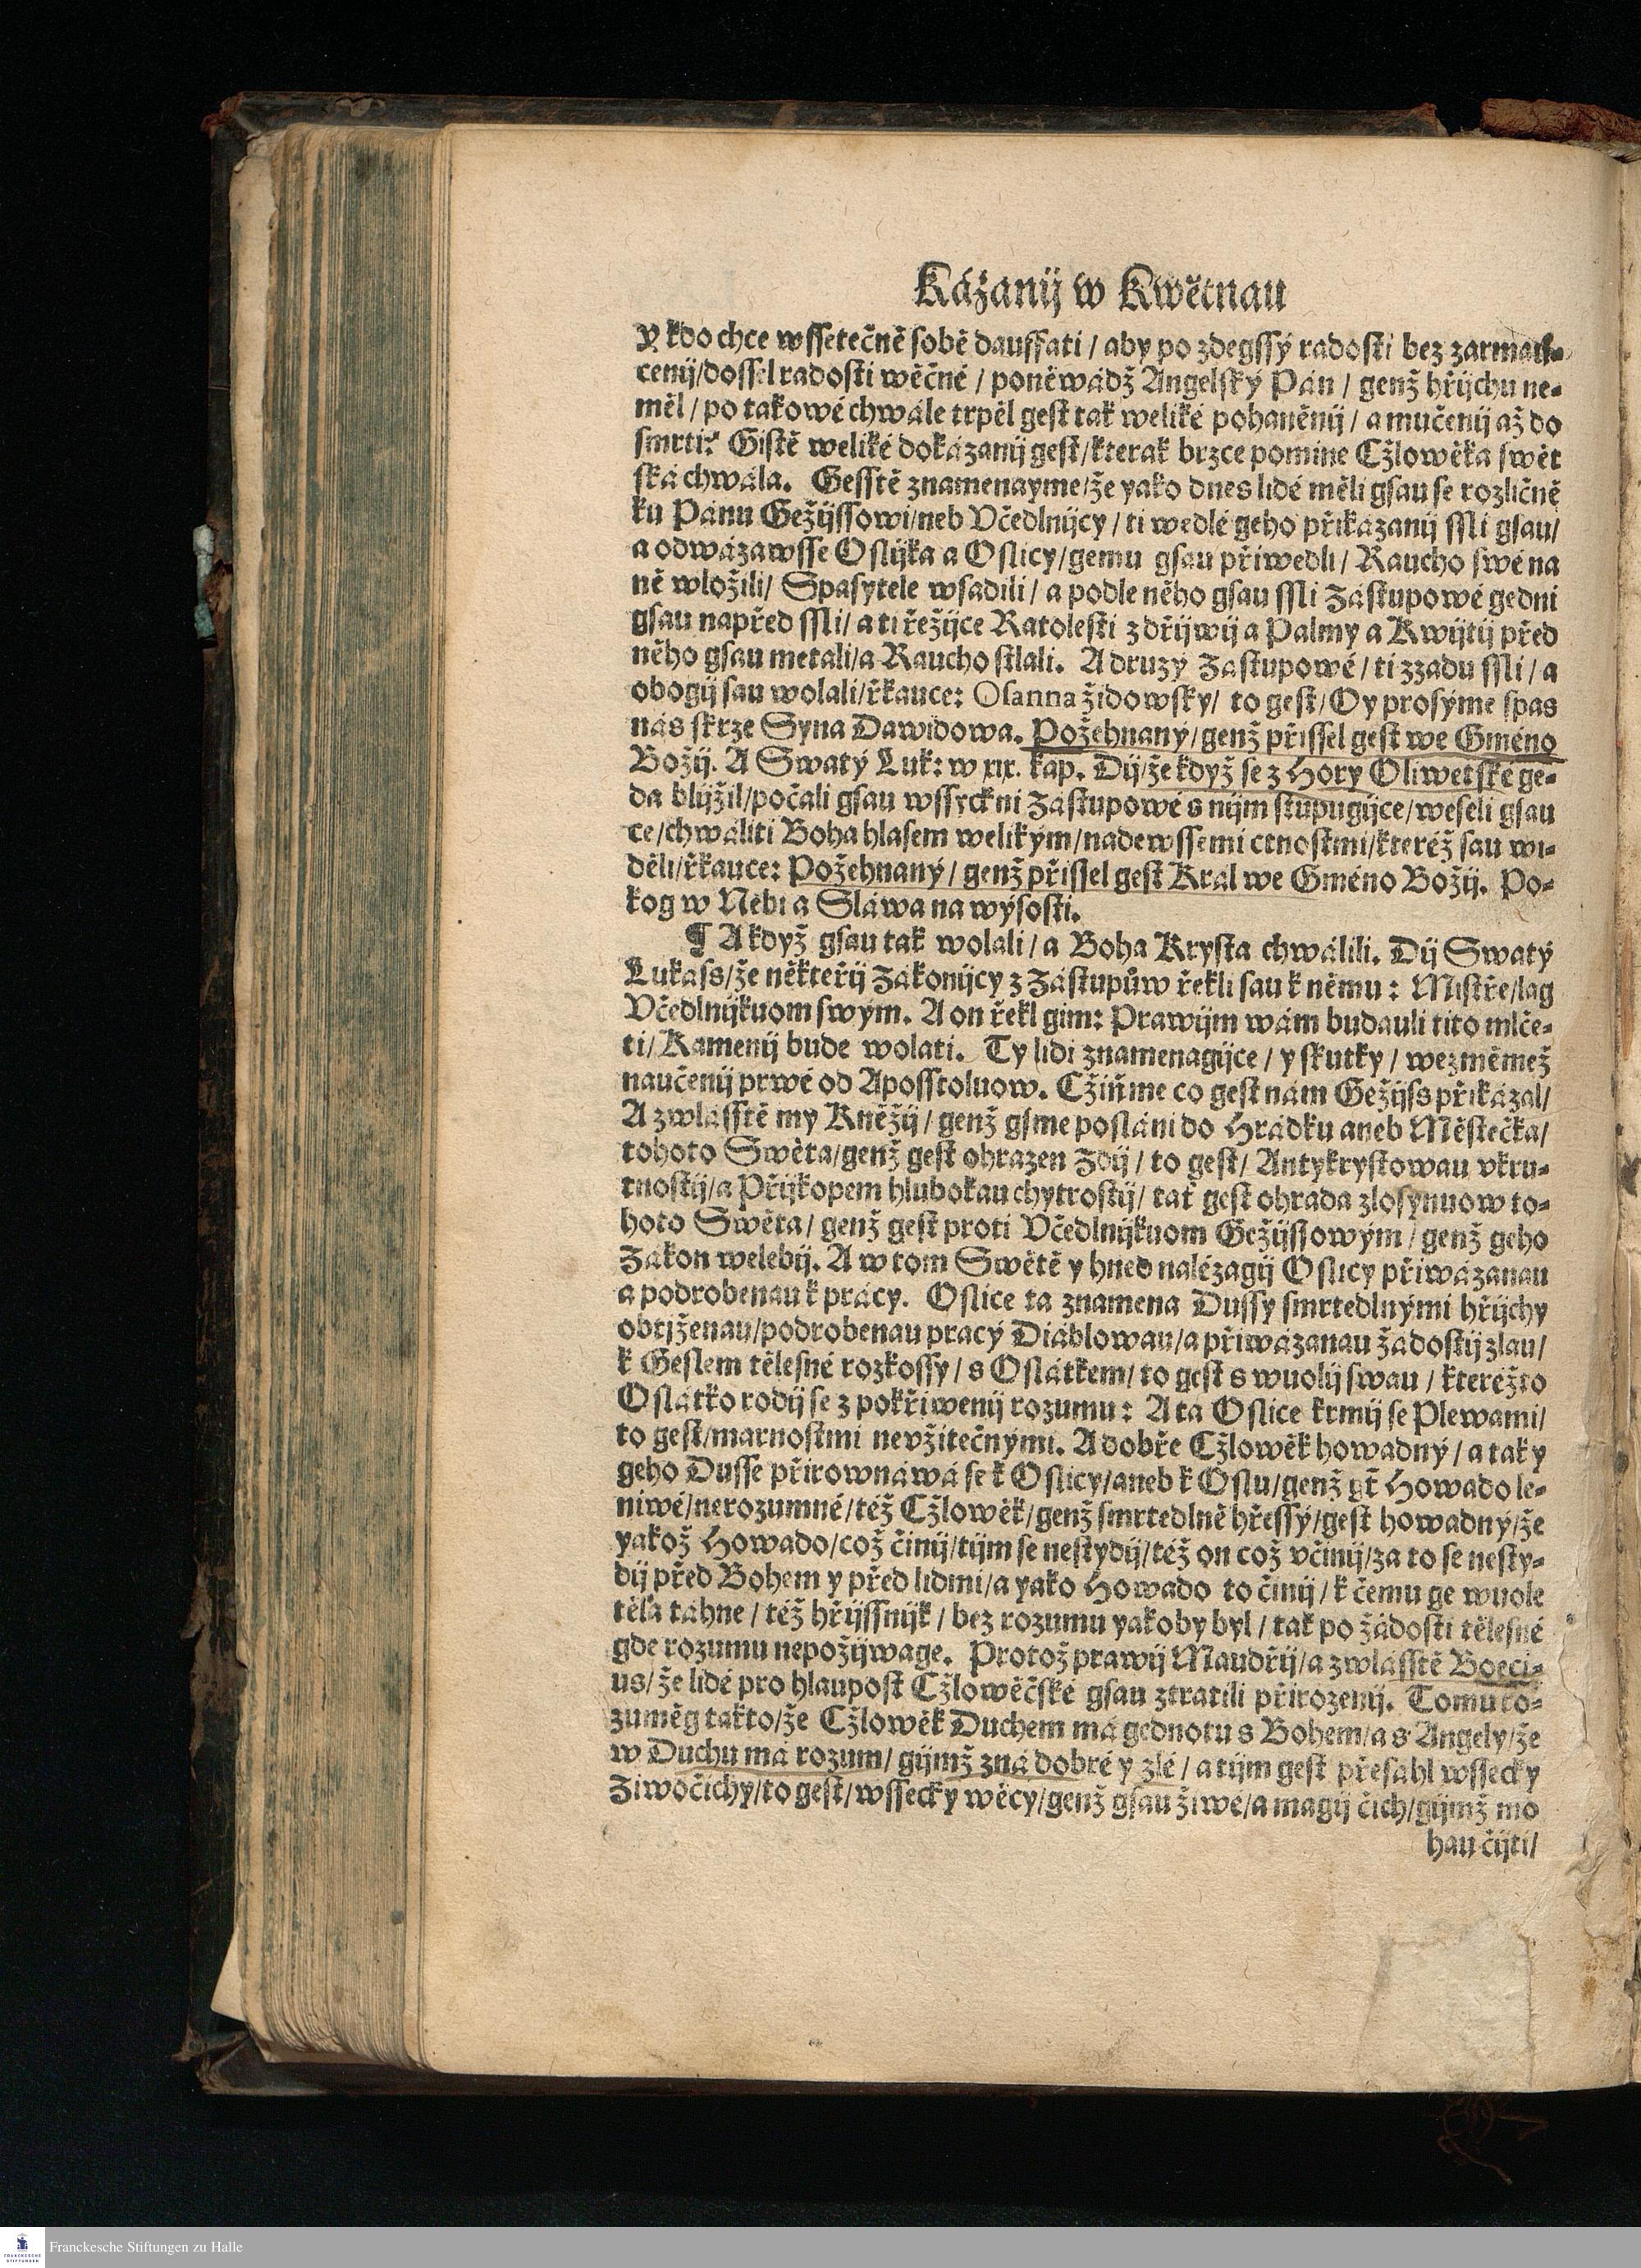 Kázanij w Kwětnau
Y kdo chce wssetečně sobě dauffati / aby po zdegssý radosti bez zarmau-
cenij/dossel radosti wěčné / poněwádž Angelský Pán / genž hřijchu ne-
měl / po takowé chwále trpěl gest tak weliké pohaněnij / a mučenij až do
smrti? Gistě weliké dokázanij gest/kterak brzce pomine Cžlowěka swět
ská chwála. Gesstě znamenayme/že yako dnes lidé měli gsau se rozličně
ku Pánu Gežijssowi/neb Včedlnijcy / ti wedlé geho přikázanij ssli gsau/
a odwázawsse Oslijka a Oslicy/gemu gsau přiwedli / Raucho swé na
ně wložili/ Spasytele wsadili / a podle něho gsau ssli Zástupowé gedni
gsau napřed ssli/ a ti řežijce Ratolesti z dřijwij a Palmy a Kwijtij před
něho gsau metali/a Raucho stlali. A druzý Zástupowé / ti zzadu ssli / a
obogij sau wolali/řkauce: Osanna židowsky/ to gest/ Oy prosýme spas
nás skrze Syna Dawidowa. Požehnaný/genž přissel gest we Gméno
Božij. A Swatý Luk: w xix. kap. Dij/že když se z Hory Oliwetské ge-
da blijžil/počali gsau wssyckni Zástupowé s nijm stupugijce/weseli gsau
ce/chwáliti Boha hlasem welikým/nadewssemi ctnostmi/kteréž sau wi-
děli/řkauce: Požehnaný / genž přissel gest Král we Gméno Božij. Po-
kog w Nebi a Sláwa na wýsosti.
¶ A když gsau tak wolali / a Boha Krysta chwálili. Dij Swatý
Lukass/že někteřij Zákonijcy z Zástupůw řekli sau k němu : Mistře/lag
Včedlnijkuom swým. A on řekl gim: Prawijm wám budauli tito mlče-
ti/ Kamenij bude wolati. Ty lidi znamenagijce / y skutky / wezměmež
naučenij prwé od Aposstoluow. Cžiňme co gest nám Gežijss přikázal/
A zwlásstě my Kněžij / genž gsme posláni do Hrádku aneb Městečka/
tohoto Swěta/genž gest ohrazen Zdij / to gest/ Antykrystowau vkru-
tnostij/a Přijkopem hlubokau chytrostij/ tať gest ohrada zlosynuow to-
hoto Swěta/ genž gest proti Včedlnijkuom Gežijssowým / genž geho
Zákon welebij. A w tom Swětě y hned nalézagij Oslicy přiwázanau
a podrobenau k prácy. Oslice ta znamená Dussy smrtedlnými hřijchy
obtjženau/podrobenau prácý Diáblowau/a přiwázanau žádostij zlau/
k Geslem tělesné rozkossy / s Oslátkem/ to gest s wuolij swau / kteréžto
Oslátko rodij se z pokřiwenij rozumu : A ta Oslice krmij se Plewami/
to gest/marnostmi nevžitečnými. A dobře Cžlowěk howadný / a tak y
geho Dusse přirownáwá se k Oslicy/aneb k Oslu/genž gt̃ Howado le-
niwé/nerozumné/též Cžlowěk/genž smrtedlně hřessý/gest howadný/že
yakož Howado/což činij/tijm se nestydij/též on což včinij/za to se nesty-
dij před Bohem y před lidmi/a yako Howado to činij / k čemu ge wuole
těla táhne / též hřijssnijk / bez rozumu yakoby byl / tak po žádosti tělesné
gde rozumu nepožijwage. Protož prawij Maudřij/a zwlásstě Boeci-
us/ že lidé pro hlaupost Cžlowěčské gsau ztratili přirozenij. Tomu ro-
zuměg takto/že Cžlowěk Duchem má gednotu s Bohem/a s Angely/že
w Duchu má rozum/ gijmž zná dobré y zlé / a tijm gest přesáhl wssecky
Ziwočichy/to gest/wssecky wěcy/genž gsau žiwé/a magij čich/gijmž mo
hau čijti/
Franckesche Stiftungen zu Halle